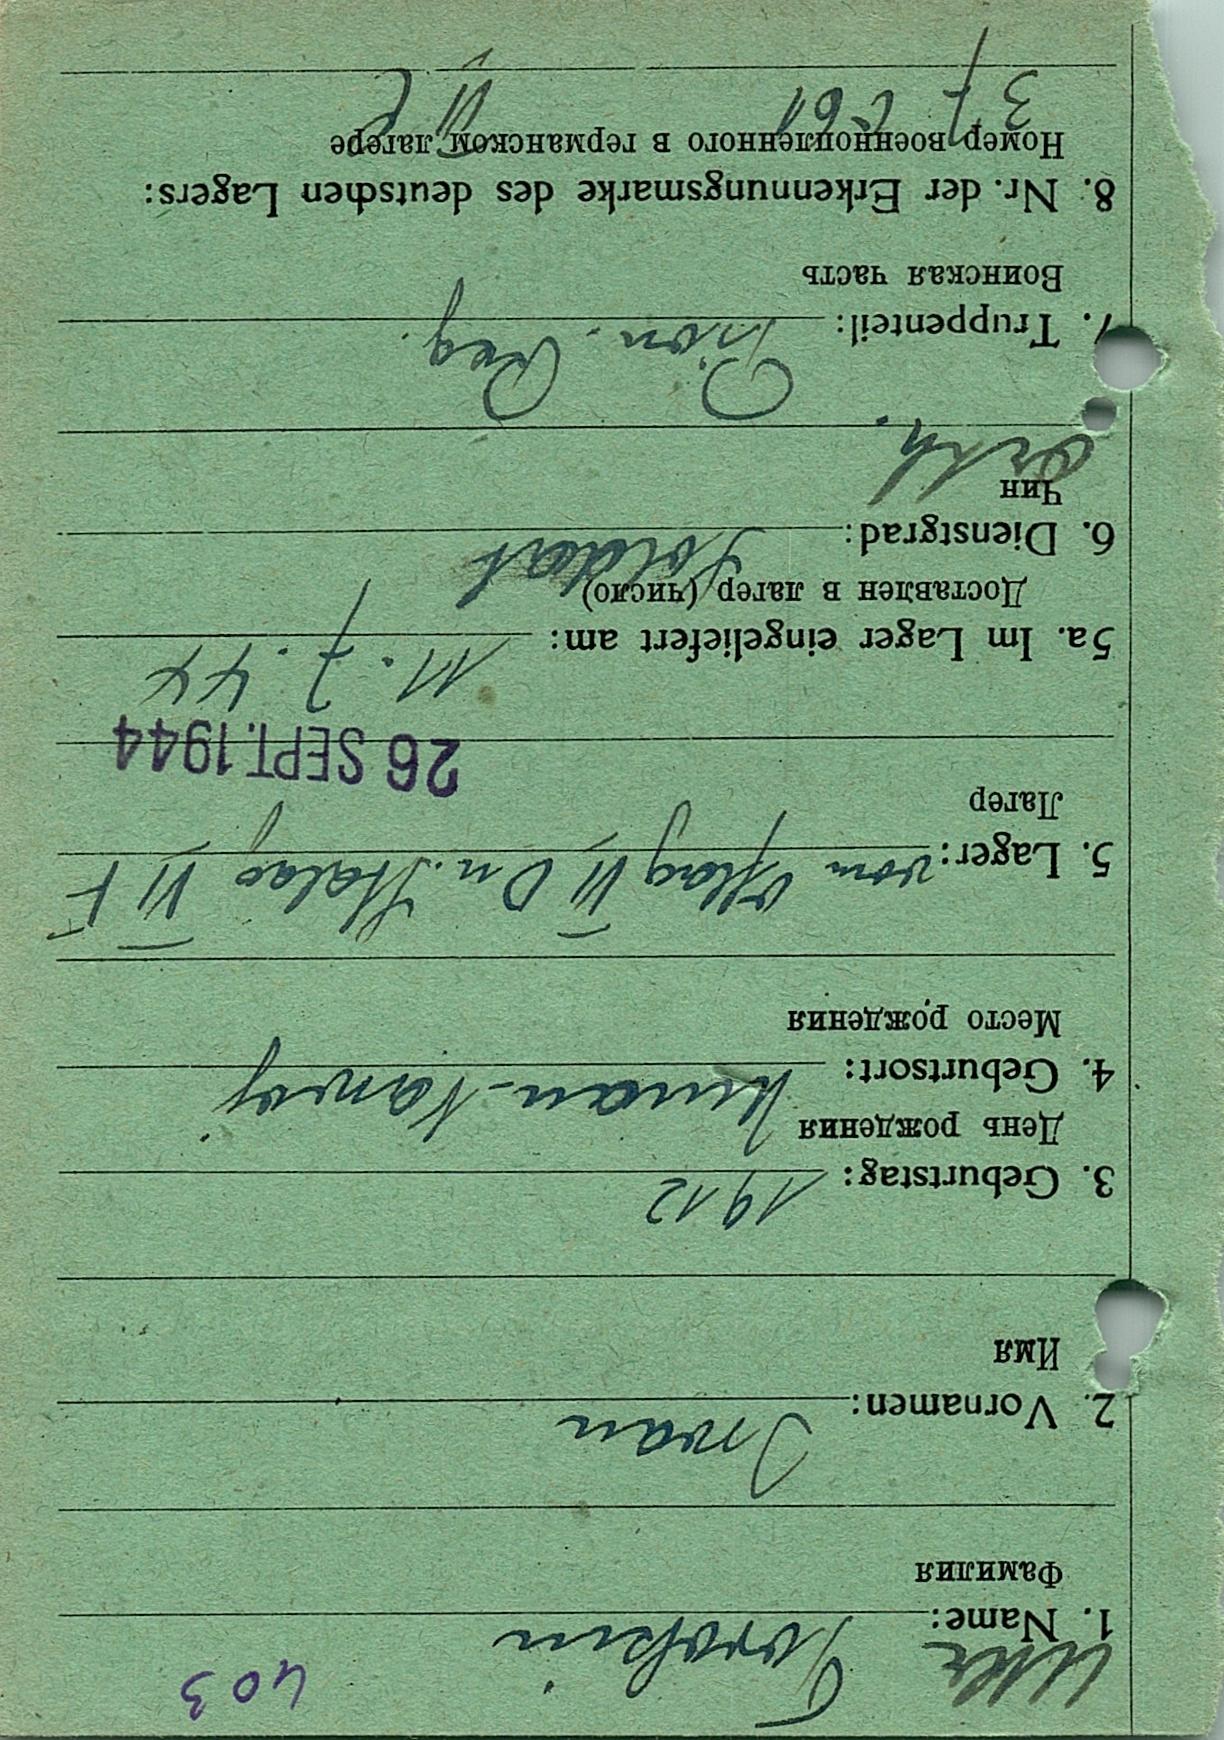 403
Ukr
1. Name: Torokin
Фамилия
2. Vornamen: Ivan
Имя
3. Geburtstag: 1912
День рождения
4. Geburtsort:
Место рождения
5. Lager: vom Oflag VI D n. Stalag VI F
Лагер
26 SEPT. 1944
5a. Im Lager eingeliefert am: 11. 7. 44
Доставлен в лагер (число)
6. Dienstgrad: Soldat
Чин
orth.
7. Truppenteil: Pion. Reg.
Воинская часть
8. Nr. der Erkennungsmarke des deutschen Lagers:
Номер военнопленного в германском лагере